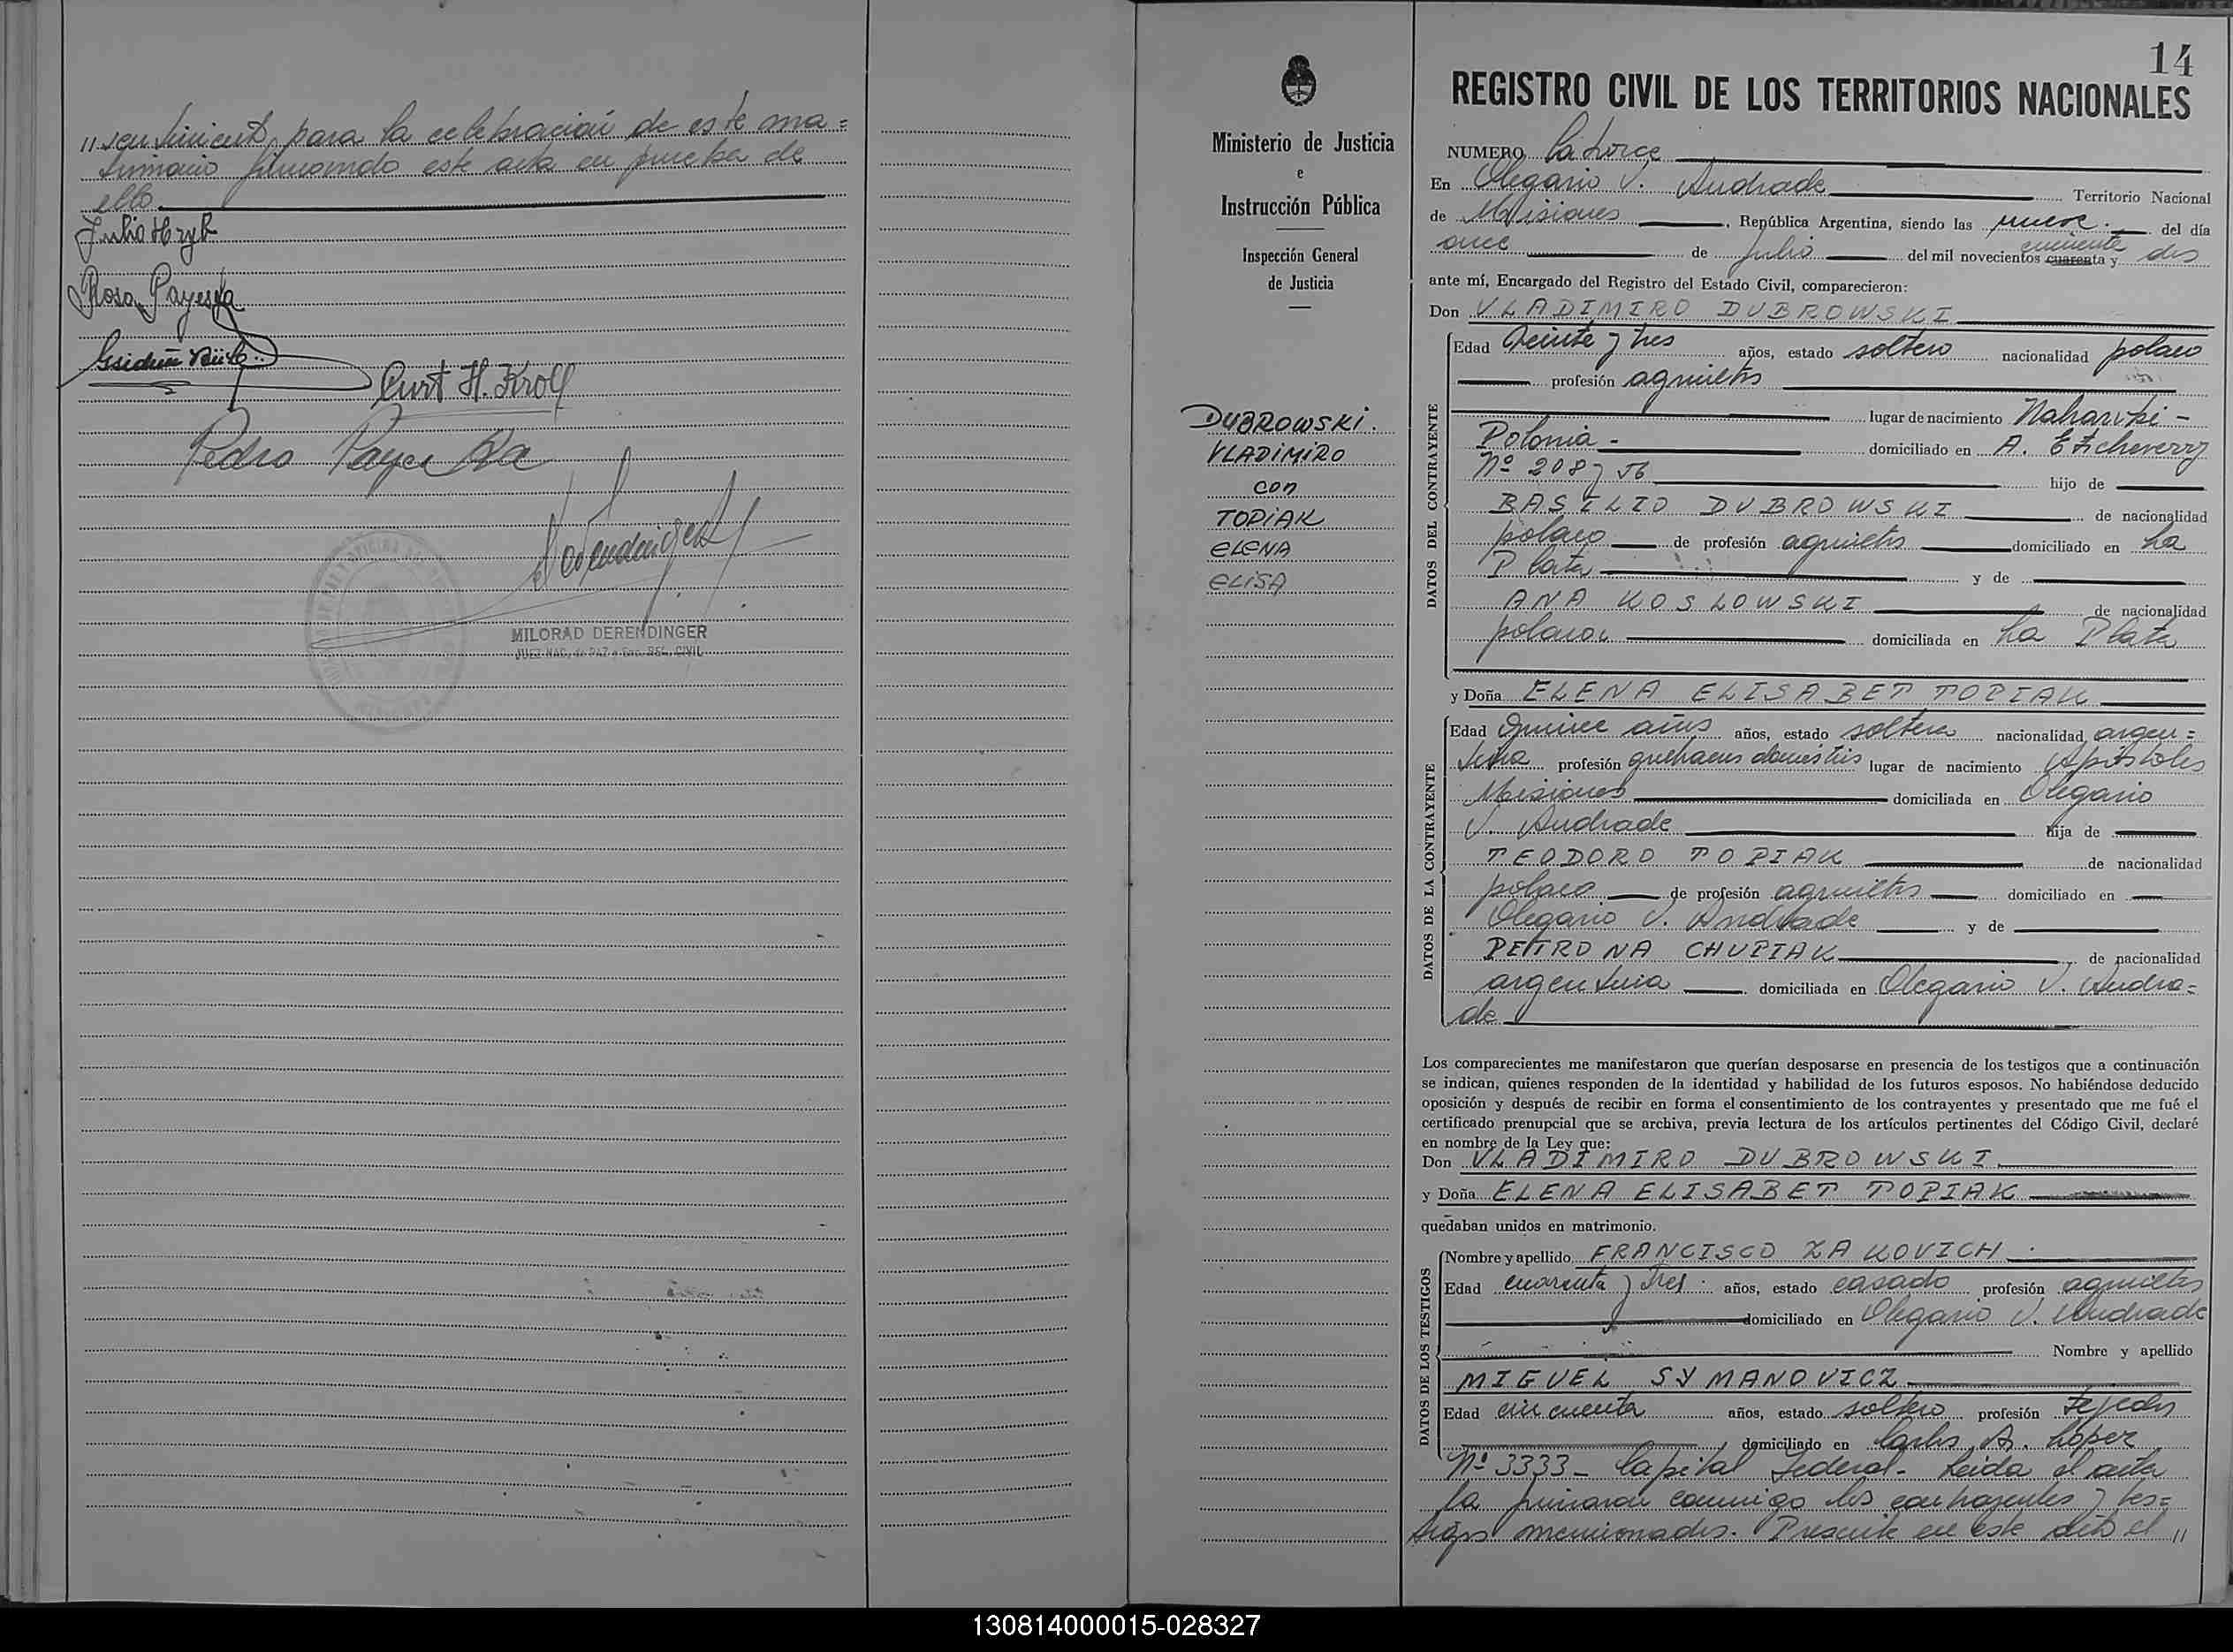 "sentimiento, para la celebración de este ma=
trimonio firmando este acta en prueba de
ello.
Julio Hryb
Rosa Payeska
Curt H. Kroll
Pedro Payeska
MILORAD DERENDINGER
JUEZ NAC. de PAZ y Enc. REG. CIVIL
Ministerio de Justicia
e
Instrucción Pública
Inspección General
de Justicia
DUBROWSKI.
VLADIMIRO
con
TOPIAK
ELENA
ELISA
14
REGISTRO CIVIL DE LOS TERRITORIOS NACIONALES
NUMERO Catorce
En Olegario V. Andrade Territorio Nacional
de Misiones, República Argentina, siendo las nueve. del día
once de Julio del mil novecientos cuarenta y cincuenta dos
ante mí, Encargado del Registro del Estado Civil, comparecieron:
Don VLADIMIRO DUBROWSKI
Edad Veinte y tres años, estado soltero nacionalidad polaco
profesión agricultor
lugar de nacimiento Naharivki -
Polonia - domiciliado en A. Etcheverry
Nº 208 y 56 hijo de
BASILIO DUBROWSKI de nacionalidad
polaco de profesión agricultor domiciliado en La
Plata y de
ANA KOSLOWSKI de nacionalidad
polaca domiciliada en La Plata
y Doña ELENA ELISABET TOPIAK
Edad Quince años años, estado soltera nacionalidad argen=
tina profesión quehaceres domésticos lugar de nacimiento Apóstoles
Misiones domiciliada en Olegario
V. Andrade hija de
TEODORO TOPIAK de nacionalidad
polaco de profesión agricultor domiciliado en
Olegario V. Andrade y de
PETRONA CHUPIAK de nacionalidad
argentina domiciliada en Olegario V. Andra=
de
DATOS DEL CONTRAYENTE
DATOS DE LA CONTRAYENTE
Los comparecientes me manifestaron que querían desposarse en presencia de los testigos que a continuación
se indican, quienes responden de la identidad y habilidad de los futuros esposos. No habiéndose deducido
oposición y después de recibir en forma el consentimiento de los contrayentes y presentado que me fué el
certificado prenupcial que se archiva, previa lectura de los artículos pertinentes del Código Civil, declaré
en nombre de la Ley que:
Don VLADIMIRO DUBROWSKI
y Doña ELENA ELISABET TOPIAK
quedaban unidos en matrimonio.
Nombre y apellido FRANCISCO ZAKOVICH
Edad cuarenta y Tres años, estado casado profesión agricultor
domiciliado en Olegario V. Andrade
Nombre y apellido
MIGUEL SYMANOVICZ
Edad cincuenta años, estado soltero profesión Tejedor
domiciliado en Carlos A. López
Nº 3333 - Capital Federal - Leida el acta
la firmaron conmigo los contrayentes y tes=
tigos mencionados. Presente en este acto el "
DATOS DE LOS TESTIGOS
130814000015-028327